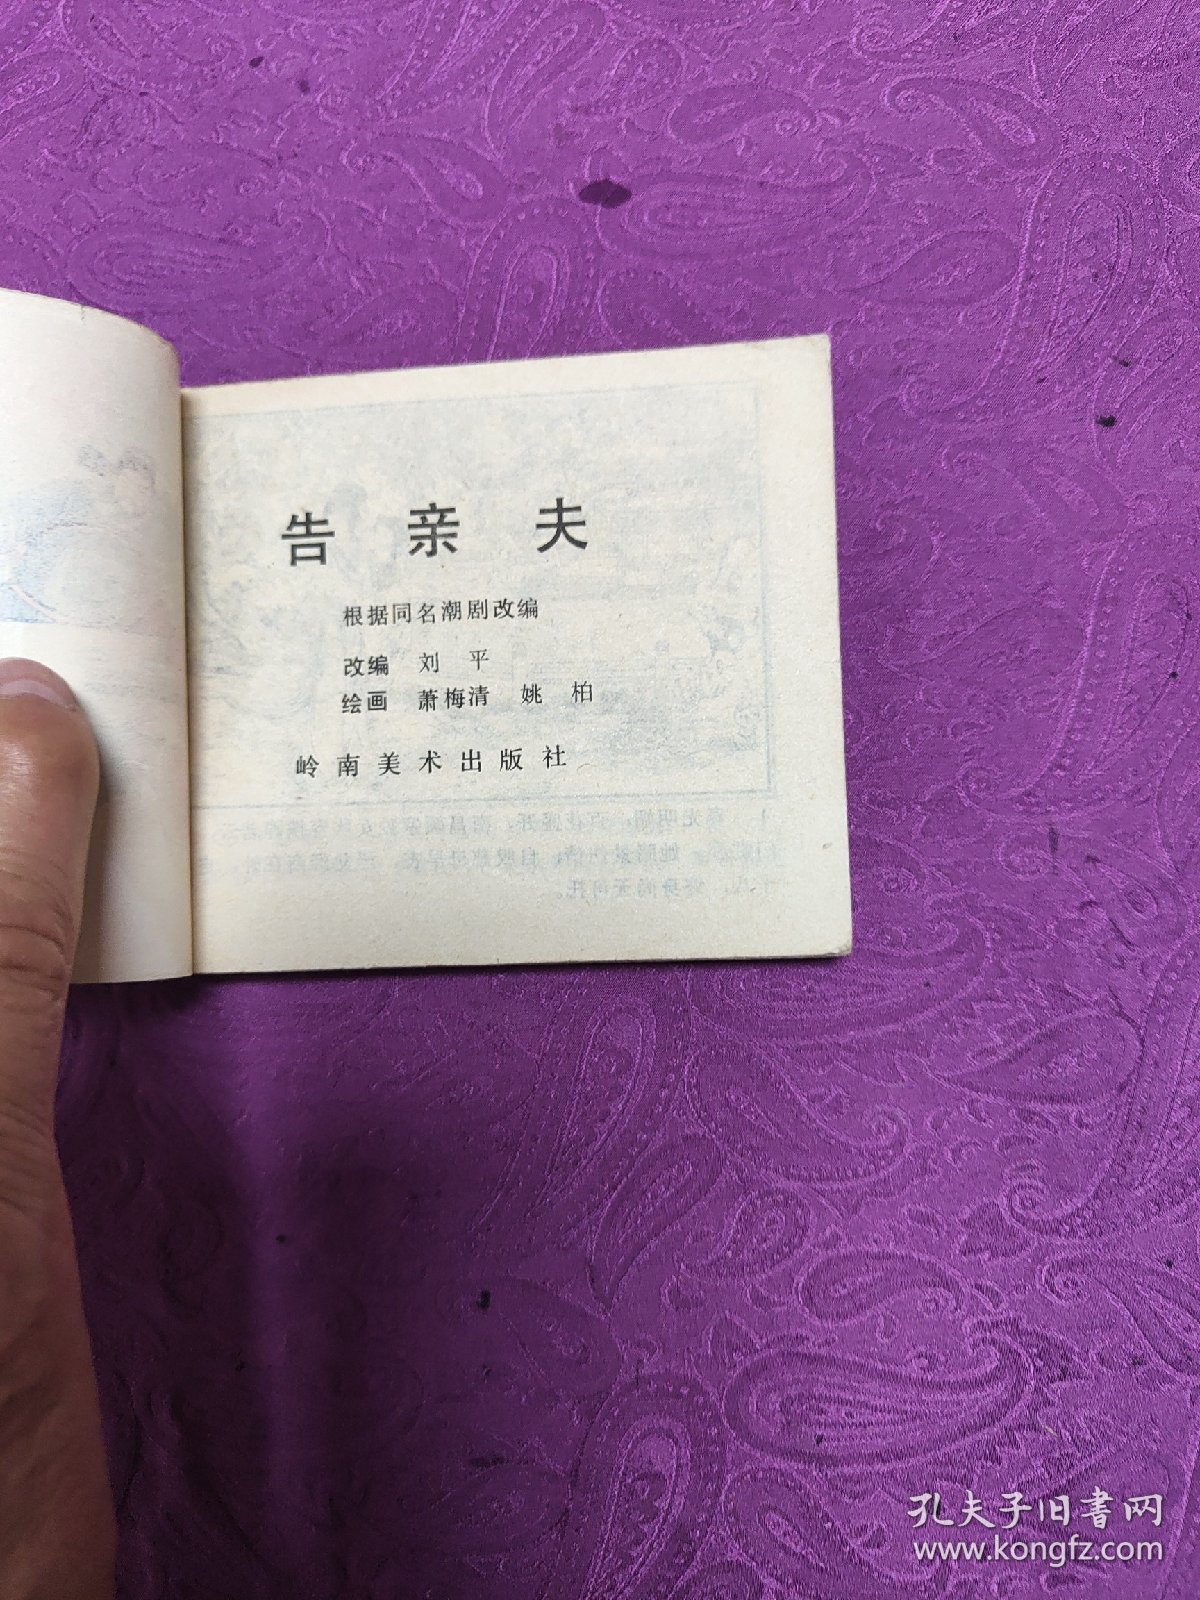 告 亲 夫
根据同名潮剧改编
改编 刘 平
绘画 萧梅清 姚 柏
岭南美术出版社
孔夫子旧書网
www.kongfz.com